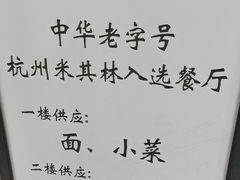 中华老字号
杭州米其林入选餐厅
一楼供应:
面、小菜
二楼供应: